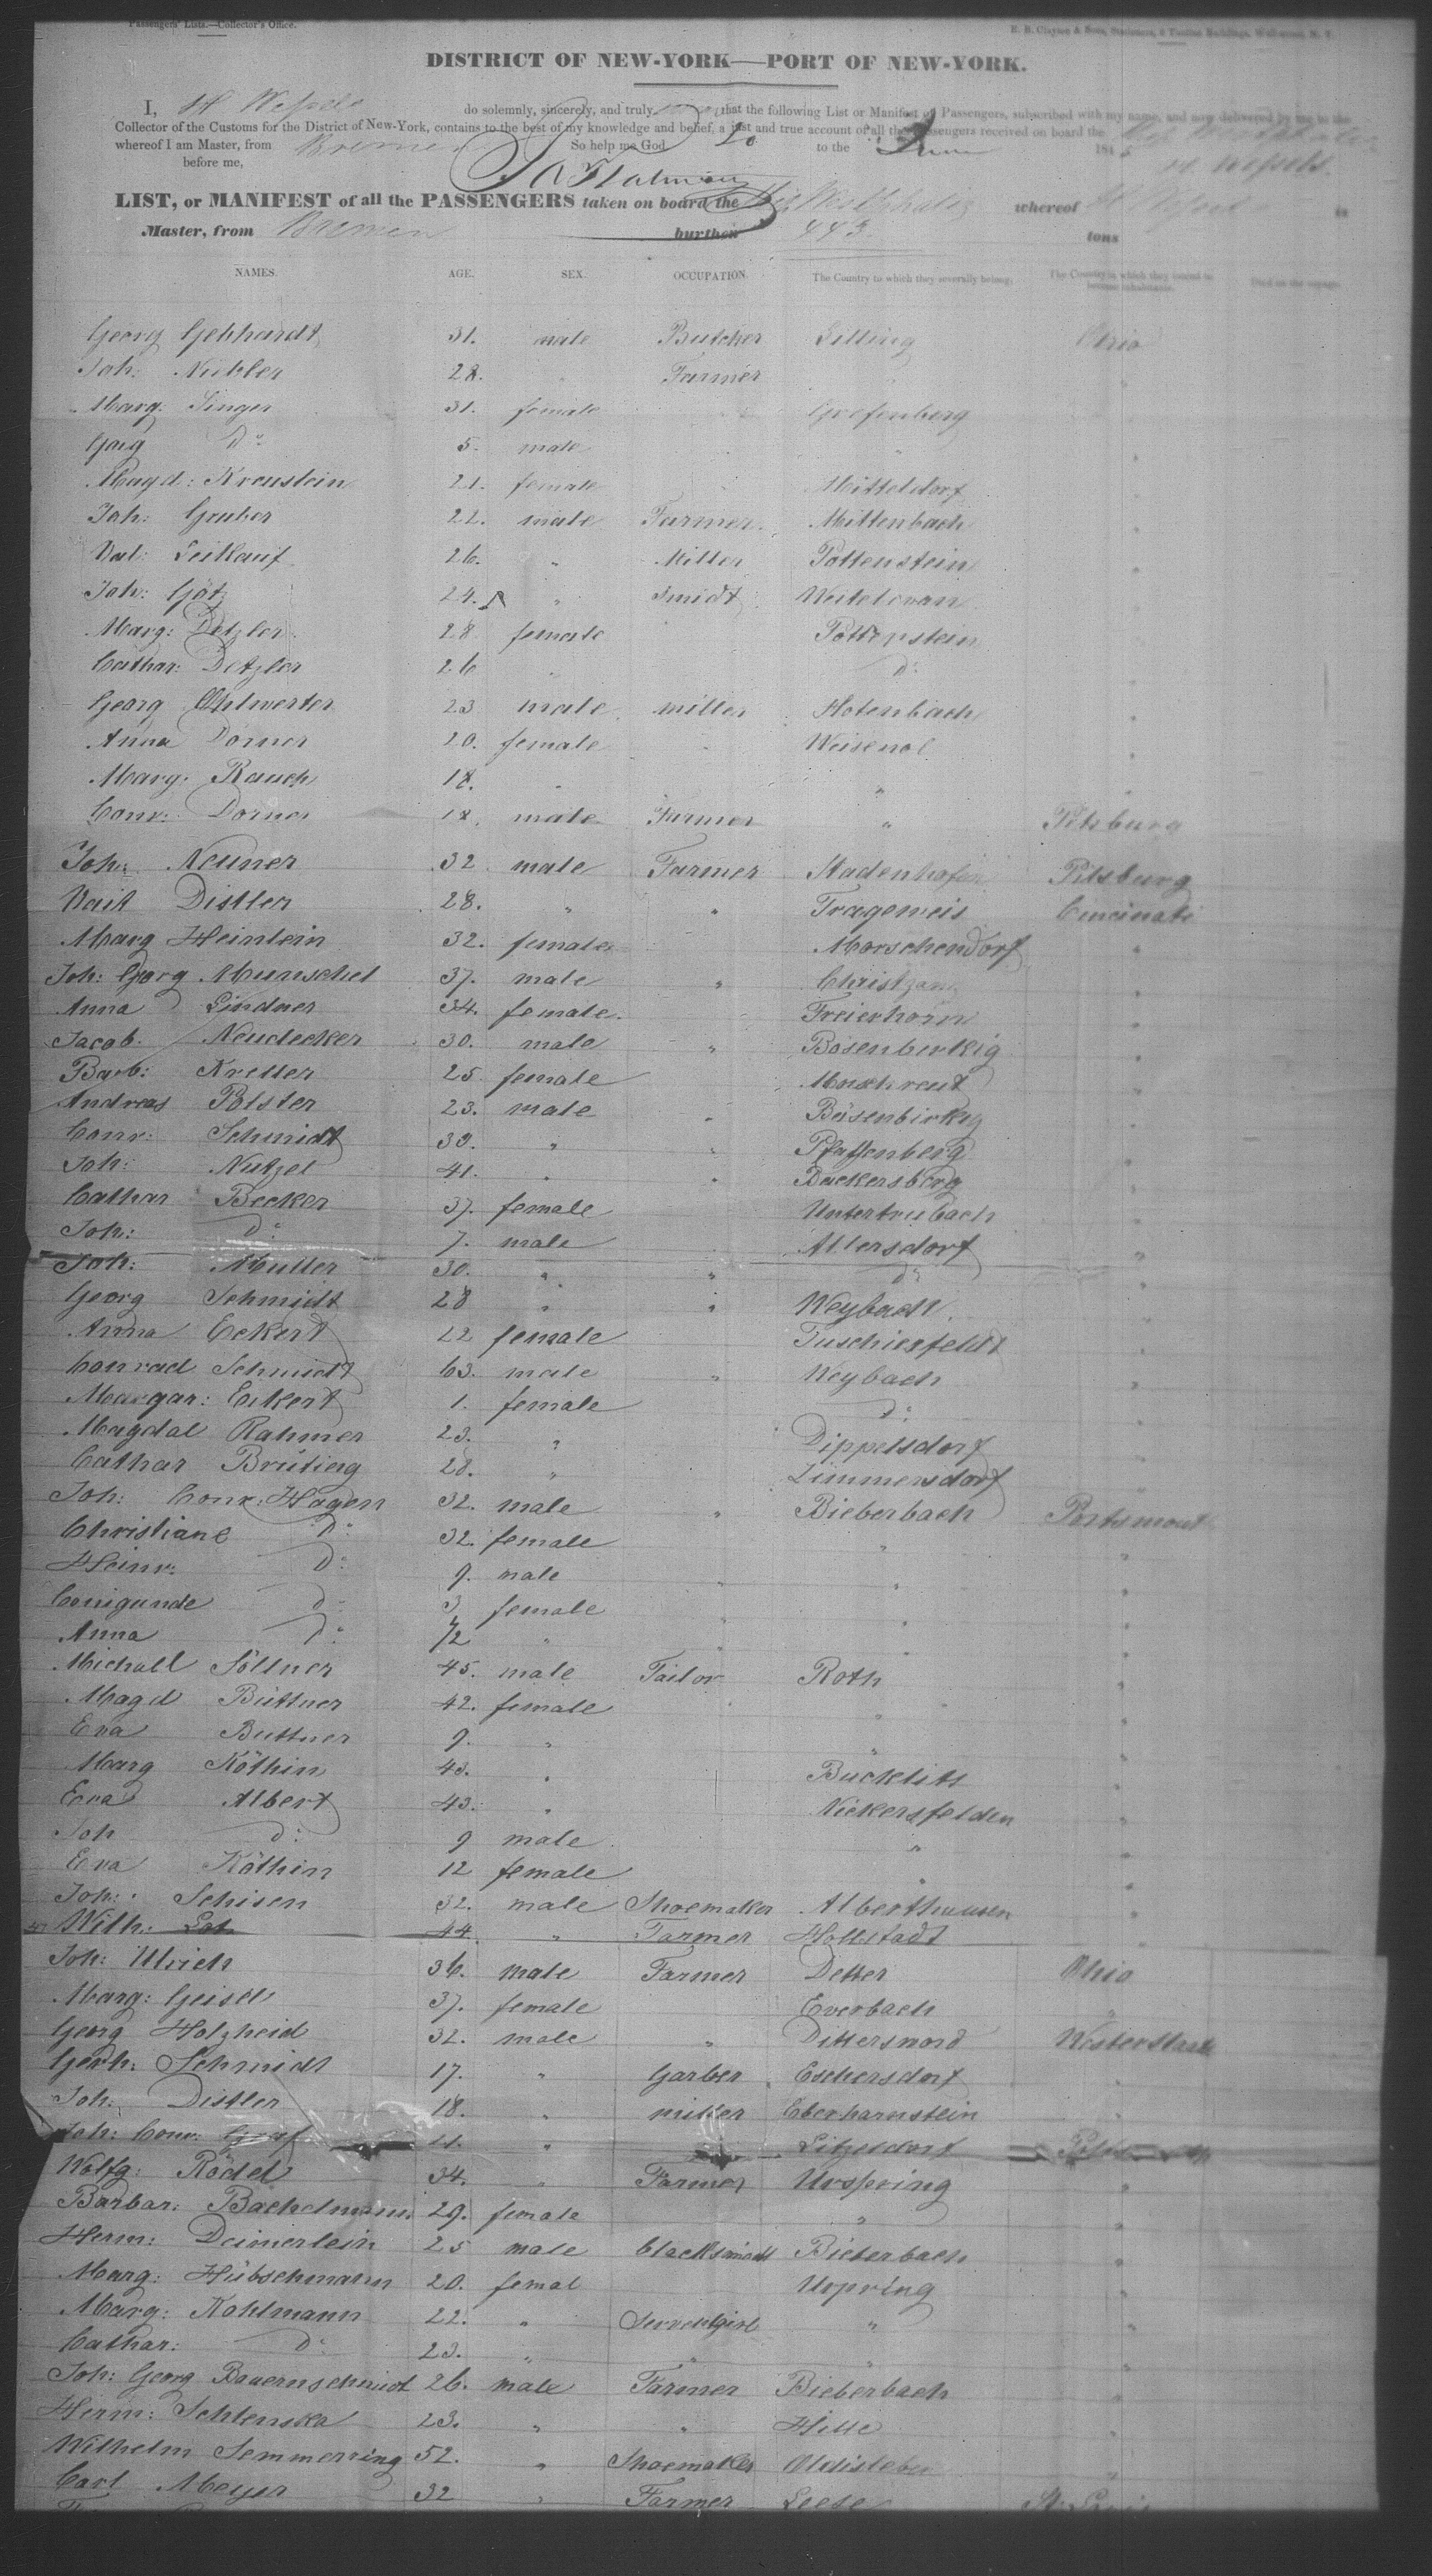 Passengers' Lists.—Collector's Office.
DISTRICT OF NEW-YORK—PORT OF NEW-YORK.
I, H Wessels do solemnly, sincerely, and truly that the following List or Manifest of Passengers, subscribed with my name, and now delivered by me to the
Collector of the Customs for the District of New-York, contains to the best of my knowledge and belief, a just and true account of all the Passengers received on board the
whereof I am Master, from Bremen So help me God 20 to the June 184
before me, H Wessels
LIST, or MANIFEST of all the PASSENGERS taken on board the whereof
Master, from Bremen burthen 443 tons
NAMES. AGE. SEX. OCCUPATION. The Country to which they severally belong. The Country in which they intend to become inhabitants. Died on the voyage.
Georg Gebhardt 31. male Butcher Ohio
Joh: Nübler 28. " Farmer
Marg. Singer 31. female Grefenberg "
Georg Do 5. male " "
Magd: Kreustein 21. female Mitteldorf "
Joh: Gruber 22. male Farmer Mittenbach "
Val: Leikauf 26. " Miller Pottenstein "
Joh: Götz 24. " Smidt "
Marg: Detzler 28 female Pottenstein "
Cathar: Detzler 26 " Do "
Georg 23 male miller Hotenbach "
Anna Dorner 20. female Weisenol "
Marg: Rauch 18. " " "
Conr: Dorner 18. male Farmer " Pitsburg
Joh: Neuner 32 male Farmer Stadenhofen Pitsburg
Vait Distler 28. " " Trageweis Cincinati
Marg Heinlein 32. female Morschendorf "
Joh: Georg Munschel 37. male " "
Anna Lindner 34. female. Freierhorn "
Jacob Neudecker 30. male " Bösenberkig "
Barb: Kretter 25 female "
Andreas Polster 23. male " Bösenbirkig "
Conr: Schmidt 30. " " Pfaffenberg "
Joh: Nützel 41. " " Buckersberg "
Cathar Becker 37. female Untertrubach "
Joh: Do 7. male Allersdorf "
Joh: Muller 30. " " Do "
Georg Schmidt 28 " " Weybach "
Anna Eckert 22 female Tuschierfeldt "
Conrad Schmidt 63. male " Weybach "
Margar: Eckert 1. female Do "
Magdal Rahmer 23. " Dippelsdorf "
Cathar Brütieg 28. " Zimmersdorf "
Joh: Conr: Hagen 32. male " Bieberbach Portsmout
Christiane Do 32. female " "
Heinr: Do 9. male " "
Conigunde Do 3 female " "
Anna Do 1/2 " " "
Michall Söllner 45. male Tailor Roth "
Magd Büttner 42. female " "
Eva Buttner 9. " " "
Marg Köthin 43. " "
Eva Albert 43. " Nickersfelden "
Joh Do 9 male " "
Eva Köthin 12 female " "
Joh: Schisen 32. male Shoemaker Alberthausen "
Wilh: 44. " Farmer Hollstadt
Joh: Ulrich 36. male Farmer Detter Ohio
Marg: Geisel 37. female Everbach "
Georg Holzheid 32. male " Ditterswod
Gerh: Schmidt 17. " Garber Eschersdorf "
Joh: Distler 18. " miller Eberharnstein "
Joh: Conr: Graf 21. " Litzeldorf
Wolfg: Rödel 34. " Farmer Urspring "
Barbar: Bachelmann 29. female " "
Herm: Deinerlein 25 male Blacksmidt Bieberbach "
Marg: Hübschmann 20. femal Urpring "
Marg: Kohlmann 22. " Servantgirl " "
Cathar: Do 23. " " " "
Joh: Georg Bauernschmidt 26. male Farmer Bieberbach "
Herm: Schlenska 23. " " Hille "
Wilhelm Semmerring 52. " Shoemaker Oldisleben "
Carl Meyer 32 " Farmer Leese St: Louis